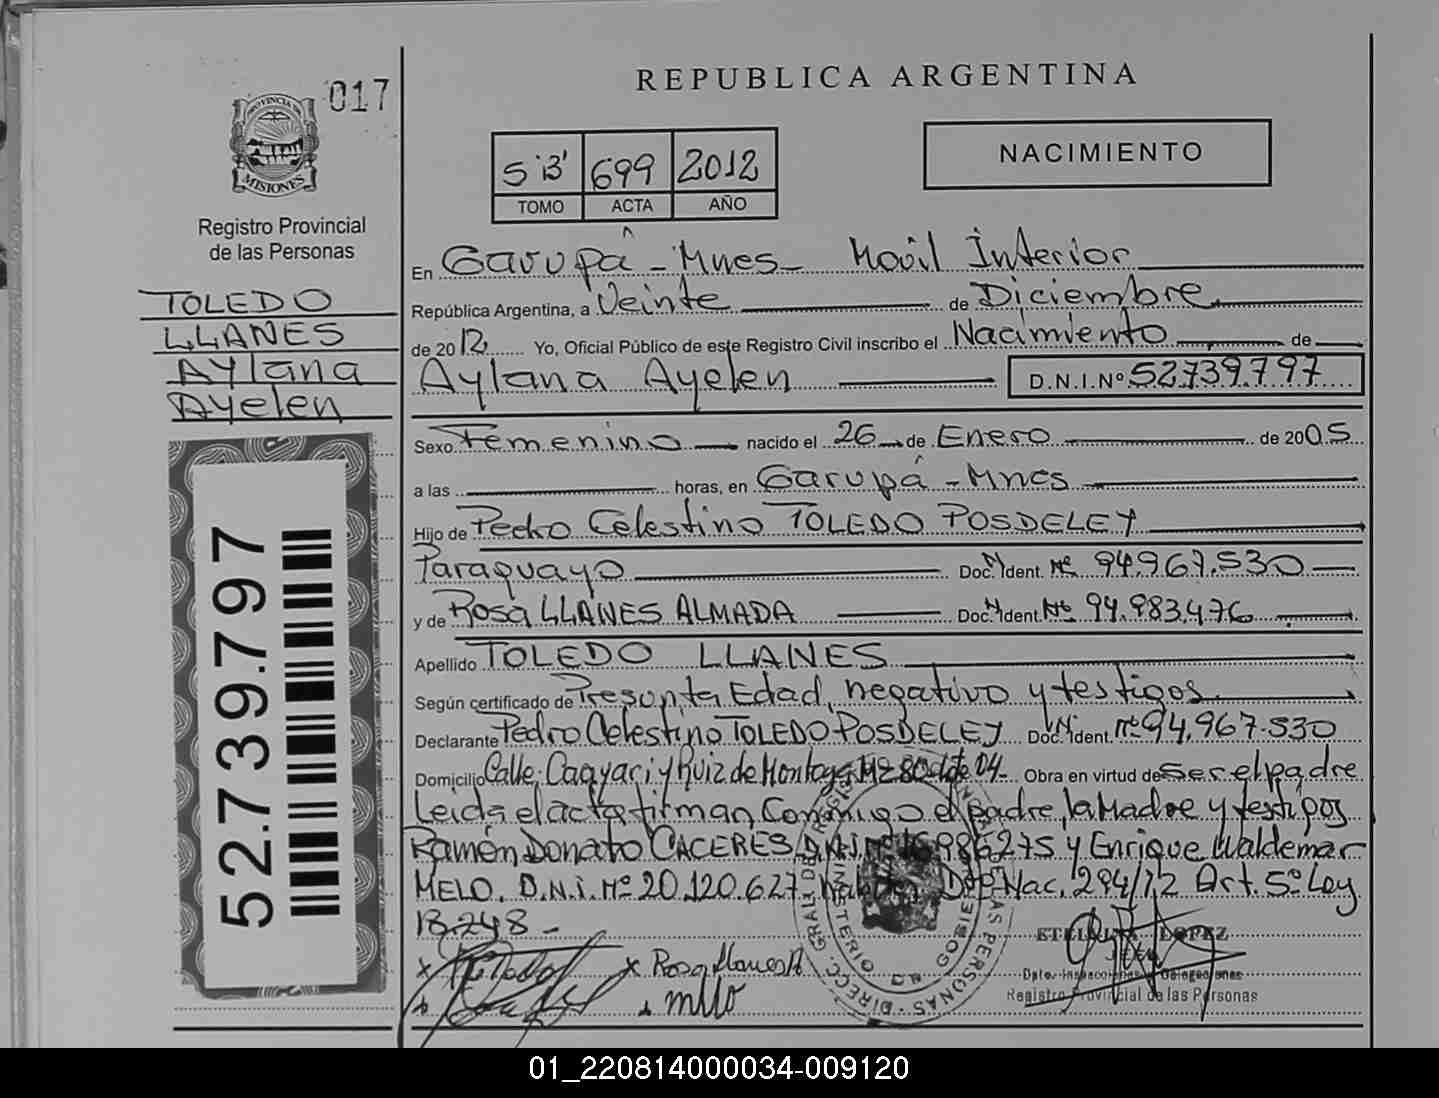 017
PROVINCIA DE
MISIONES
Registro Provincial
de las Personas
TOLEDO
LLANES
Aylana
Ayelen
52.739.797
REPUBLICA ARGENTINA
5 "B" 699 2012
TOMO ACTA AÑO
NACIMIENTO
En Garupá - Mnes - Movil Interior
República Argentina, a Veinte de Diciembre
de 2012 Yo, Oficial Público de este Registro Civil inscribo el Nacimiento de
Aylana Ayelen D.N.I.Nº 52.739.797
Sexo Femenino nacido el 26 de Enero de 2005
a las horas, en Garupá - Mnes
Hijo de Pedro Celestino TOLEDO POSDELEY
Paraguayo Doc. Ident. Nº 94.967.530
y de Rosa LLANES ALMADA Doc. Ident. Nº 94.983.476
Apellido TOLEDO LLANES
Según certificado de Presunta Edad, negativo y testigos
Declarante Pedro Celestino TOLEDO POSDELEY Doc. Ident. Nº 94.967.530
Domicilio Calle: Caayari y Ruiz de Montoya Mz 80 Lote 04 - Obra en virtud de ser el padre
Leida el acta firman Conmigo el padre, la Madre y testigos
Ramón Donato CACERES D.N.I. Nº 16.986275 y Enrique Waldemar
MELO. D.N.i. Nº 20.120.627 Dto Nac. 294/12 Art. 5º Ley
13.248 -
x x Rosa Llanes A
ETELVINA LOPEZ
JEFE
Dpto. Inspecciones y Delegaciones
Registro Provincial de las Personas
01_220814000034-009120